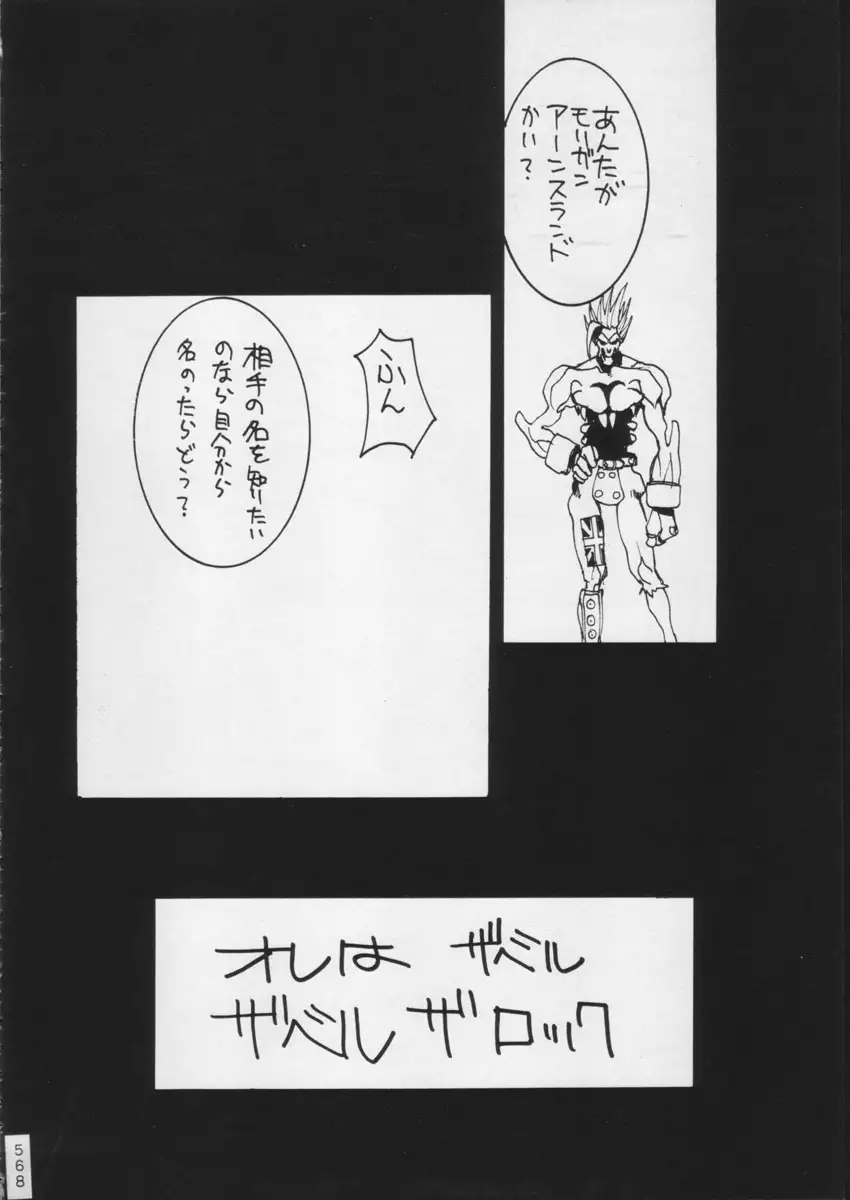 あんたが
モリガン
アーンスランド
かい?
ふん
相手の名を知りたい
のなら自分から
名のったらどう?
オレは ザベル
ザベル ザ ロック
568